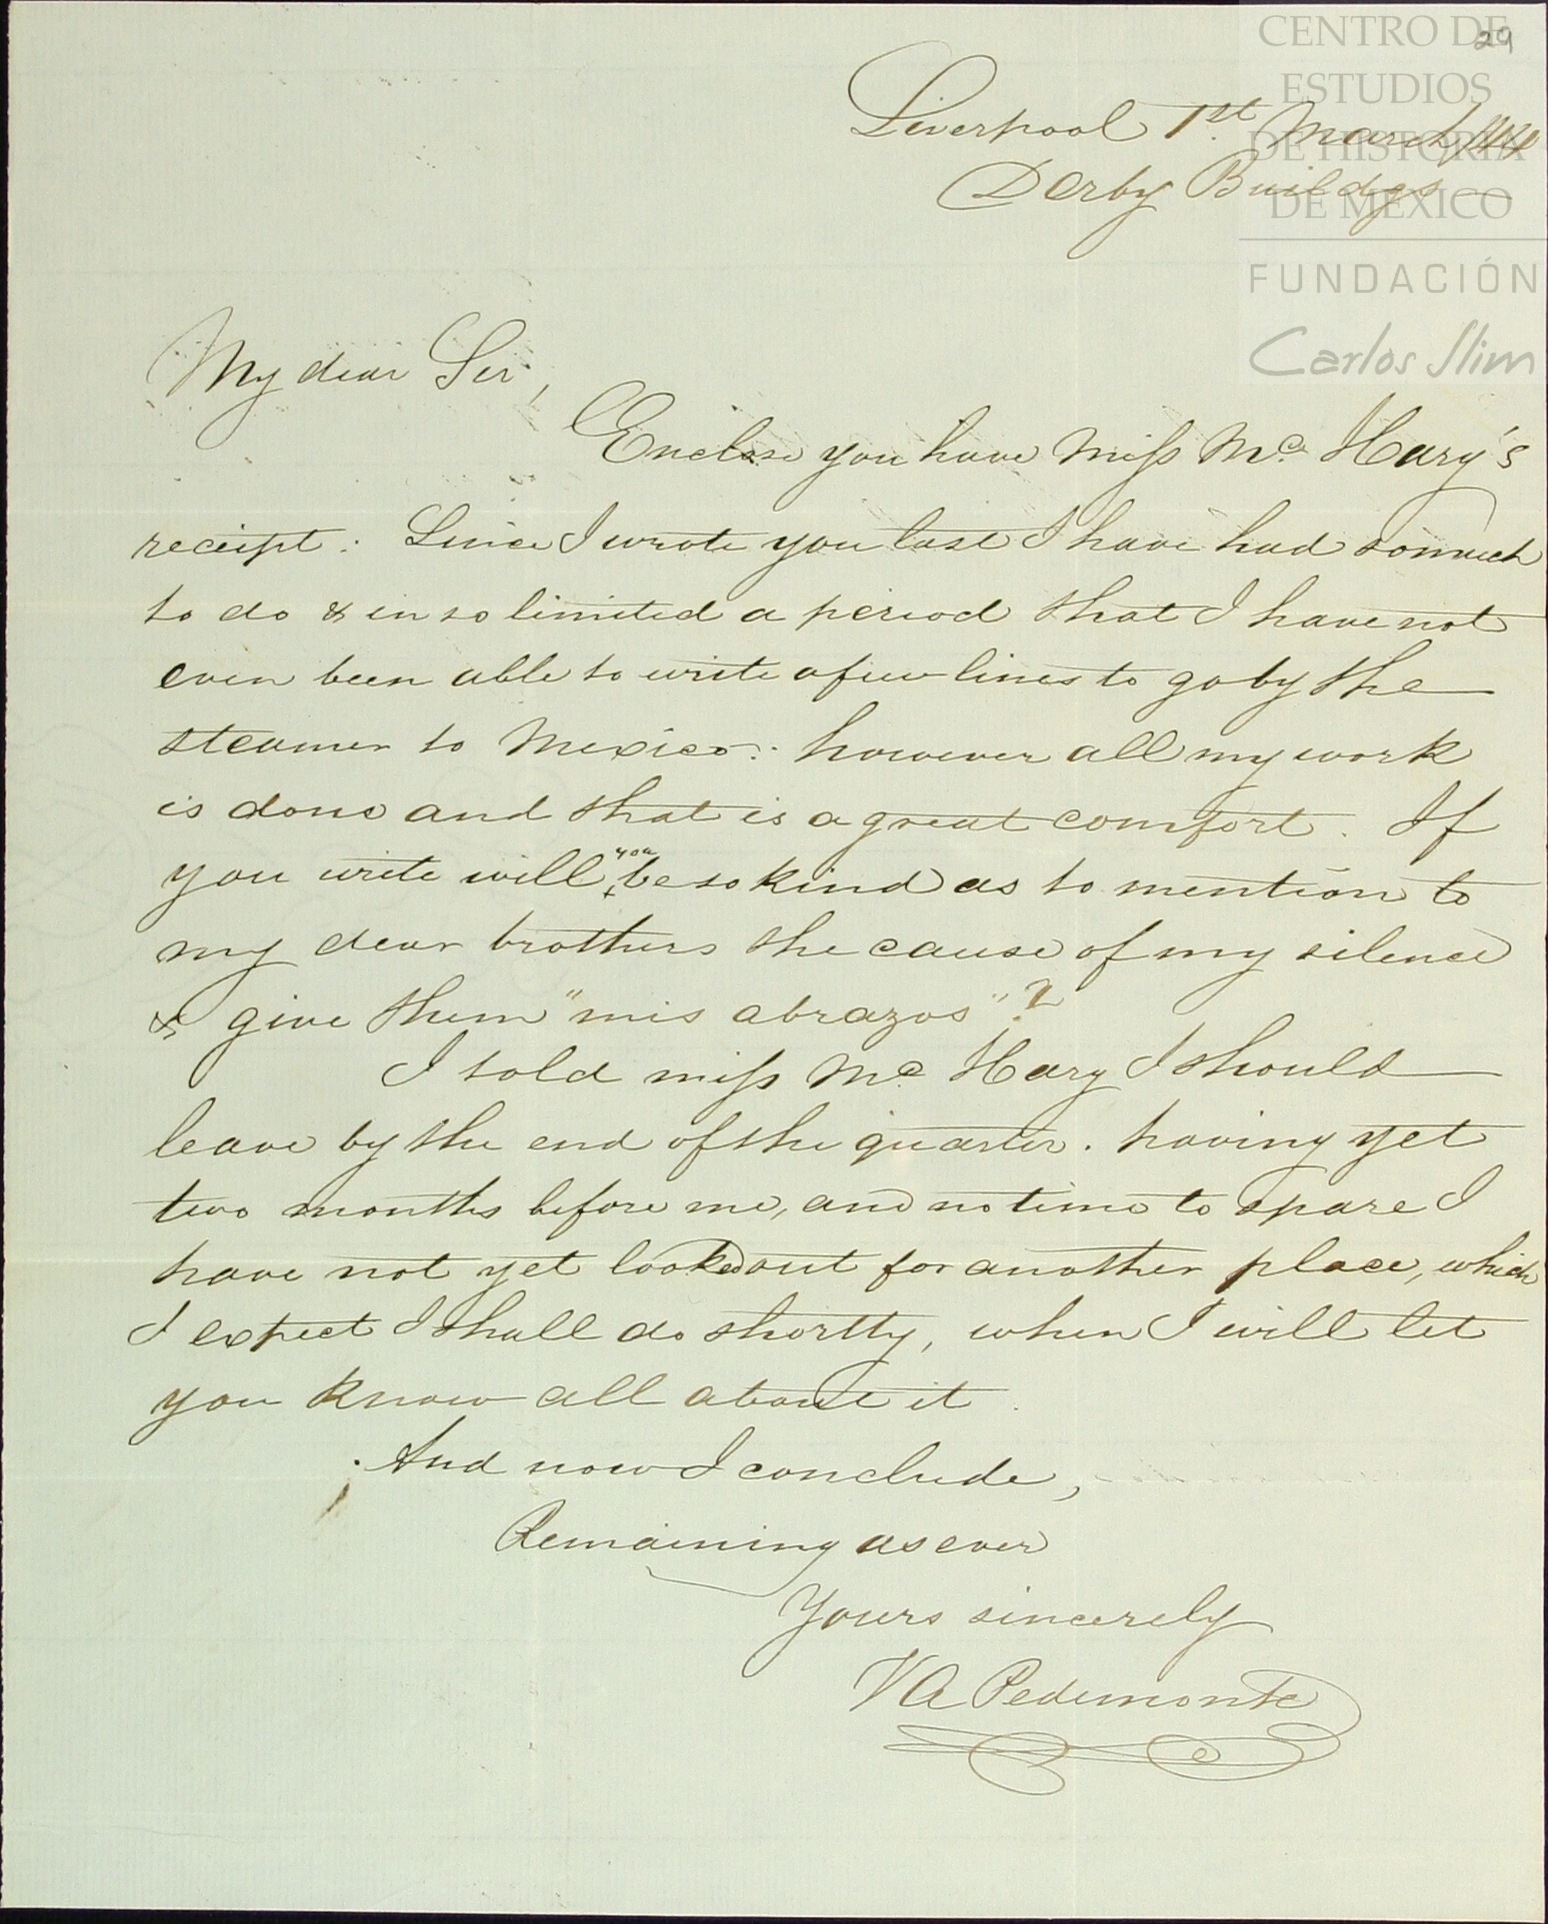 29
CENTRO DE
ESTUDIOS
DE HISTORIA
DE MEXICO
FUNDACIÓN
Carlos Slim
Liverpool 1st March /44
Derby Buildgs
My dear Sir,
Enclose you have Miss Mc. Hary's
receipt: Since I wrote you last I have had so much
to do & in so limited a period that I have not
even been able to write a few lines to go by the
steamer to Mexico: however all my work
is done and that is a great comfort. If
you write will you be so kind as to mention to
my dear brothers the cause of my silence
& give them "mis abrazos"?
I told miss Mc. Hary I should
leave by the end of the quarter. having yet
two months before me, and no time to spare I
have not yet looked out for another place, which
I expect I shall do shortly, when I will let
you know all about it.
And now I conclude,
Remaining as ever
Yours sincerely
VA Pedemonte